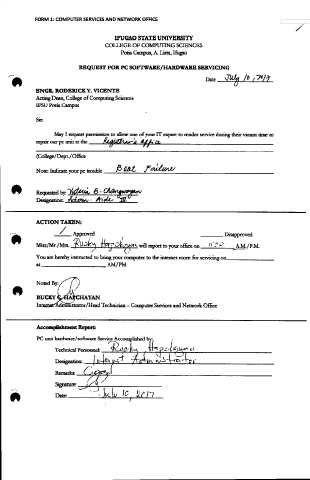 FORM 1: COMPUTER SERVICES AND NETWORK OFFICE
IFUGAO STATE UNIVERSITY
COLLEGE OF COMPUTING SCIENCES
Potia Campus, A. Lista, Ifugao
REQUEST FOR PC SOFTWARE/HARDWARE SERVICING
Date July 10, 2017
ENGR. RODERICK Y. VICENTE
Acting Dean, College of Computing Sciences
IFSU Potia Campus
Sir:
May I request permission to allow one of your IT expert to render service during their vacant time to
repair our pc unit at the Registrar's Office
(College/Dept./Office
Note: Indicate your pc trouble Boot Failure
Requested by: B.
Designation: Admin. Aide IV
ACTION TAKEN:
/ Approved Disapproved
Miss/Mr./Mrs. Rucky Hapichayan will report to your office on A.M./P.M.
You are hereby instructed to bring your computer to the internet room for servicing on
at AM/PM
Noted By:
RUCKY G. HAPICHAYAN
Internet Administrator/Head Technician – Computer Services and Network Office
Accomplishment Report:
PC unit hardware/software Service Accomplished by:
Technical Personnel: Rucky Hapichayan
Designation: Internet Administrator
Remarks: Good
Signature:
Date: July 10, 2017